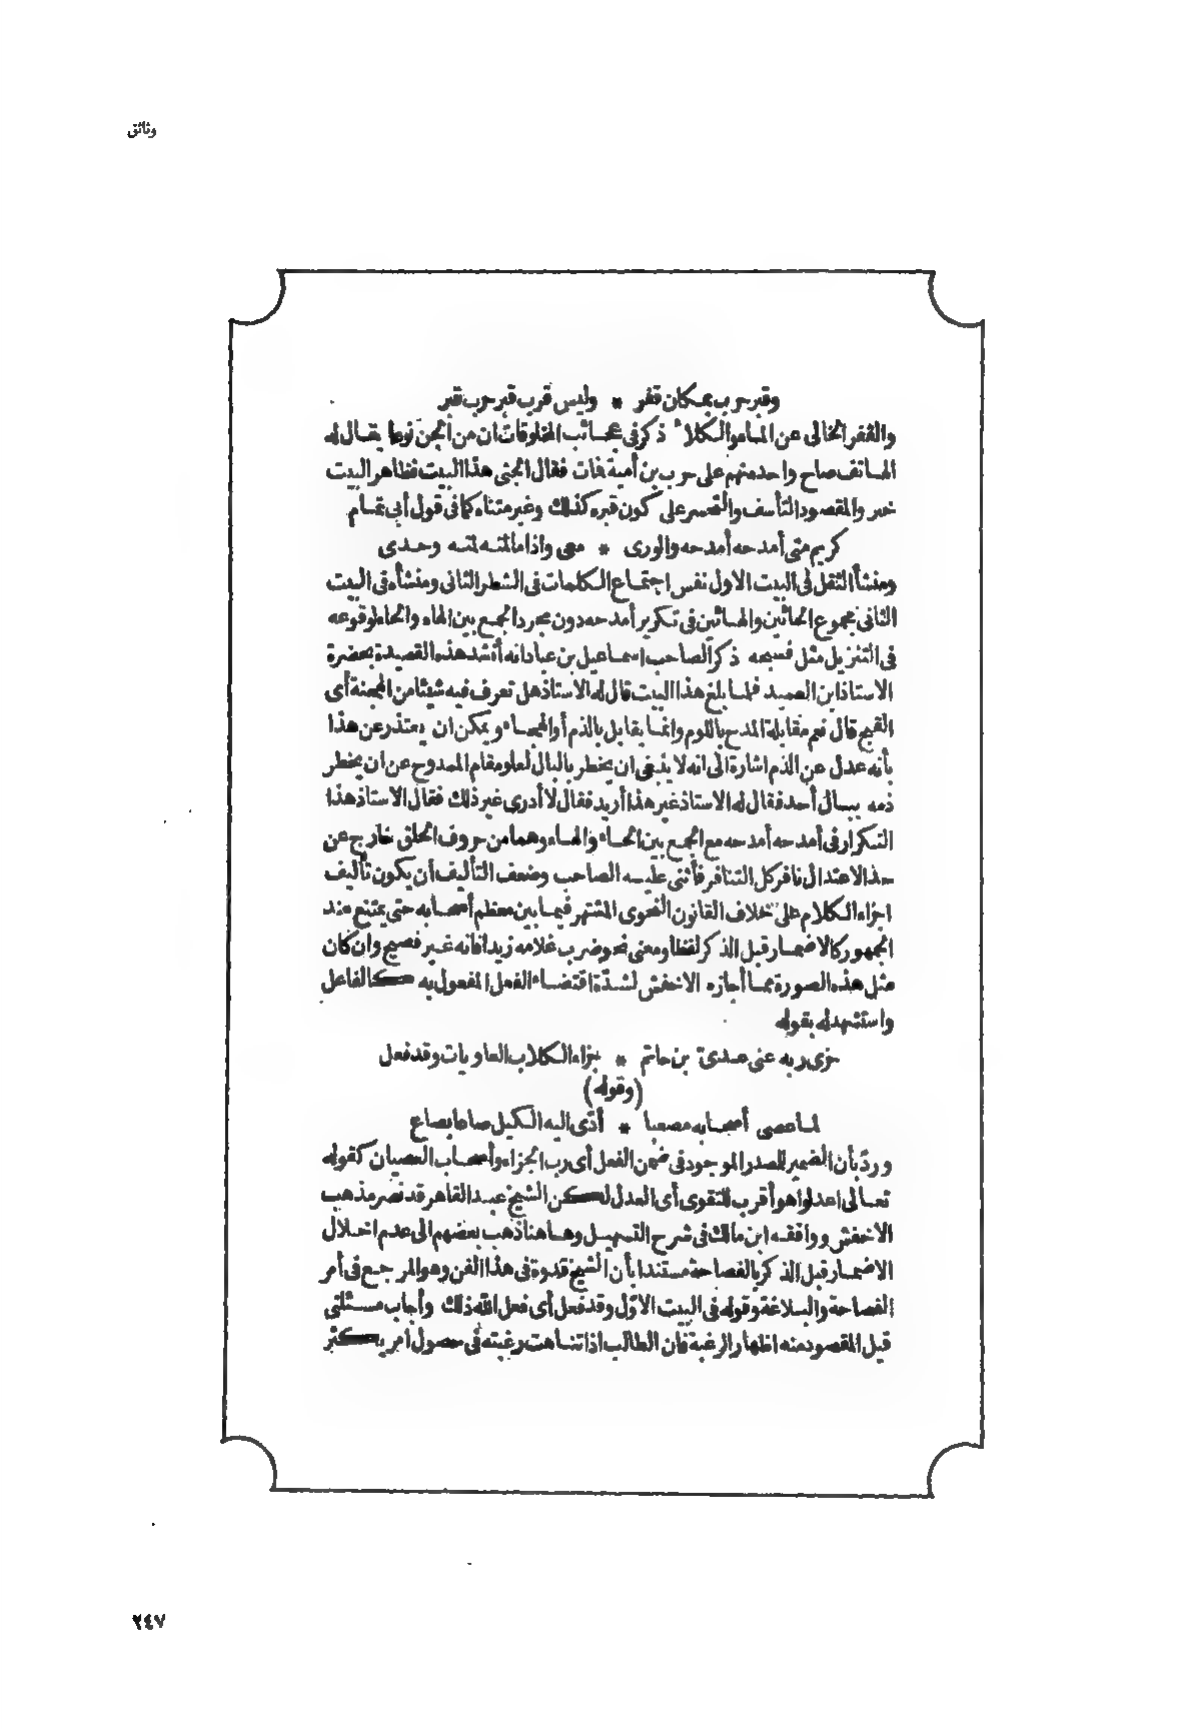 وثائق
وقبر حرب بمكان قفر * وليس قرب قبر حرب قبر
والقفر الخالى عن الماء والكلاء ذكر فى عجائب المخلوقات ان من الجن نوعا يقال له
الهاتف صاح واحد منهم على حرب بن أمية فمات فقال الجنى هذا البيت فظاهر البيت
خبر والمقصود التأسف والتحسر على كون قبره كذلك وغير متناه كما فى قول أبى تمام
كريم متى أمدحه أمدحه والورى * معى واذا مالمته لمته وحدى
ومنشأ الثقل فى البيت الاول نفس اجتماع الكلمات فى الشطر الثانى ومنشأه فى البيت
الثانى مجموع الحائين والهائين فى تكرير أمدحه دون مجرد الجمع بين الهاء والحاء لوقوعه
فى التنزيل مثل فسبحه ذكر الصاحب اسماعيل بن عباد انه أنشد هذه القصيدة بحضرة
الاستاذ ابن العميد فلما بلغ هذا البيت قال له الاستاذ هل تعرف فيه شيئا من الهجنة أى
القبح قال نعم مقابلة المدح باللوم وانما يقابل بالذم أو الهجاء ويمكن ان يعتذر عن هذا
بأنه عدل عن الذم اشارة الى انه لا ينبغى ان يخطر بالبال لعلو مقام الممدوح عن ان يخطر
ذمه ببال أحد فقال له الاستاذ غير هذا أريد فقال لا أدرى غير ذلك فقال الاستاذ هذا
التكرار فى أمدحه أمدحه مع الجمع بين الحاء والهاء وهما من حروف الحلق خارج عن
حد الاعتدال نافر كل التنافر فأثنى عليه الصاحب وضعف التأليف أن يكون تأليف
اجزاء الكلام على خلاف القانون النحوى المشتهر فيما بين معظم أصحابه حتى يمتنع عند
الجمهور كالاضمار قبل الذكر لفظا ومعنى نحو ضرب غلامه زيدا فانه غير فصيح وان كان
مثل هذه الصورة مما أجازه الاخفش لشدّة اقتضاء الفعل المفعول به كالفاعل
واستشهد له بقوله
جزى ربه عنى عدىّ بن حاتم * جزاء الكلاب العاويات وقد فعل
(وقوله)
لما عصى أصحابه مصعبا * أدّى اليه الكيل صاعا بصاع
وردّ بأن الضمير للمصدر الموجود فى ضمن الفعل أى رب الجزاء وأصحاب العصيان كقوله
تعالى اعدلوا هو أقرب للتقوى أى العدل لكن الشيخ عبد القاهر قد نصر مذهب
الاخفش ووافقه ابن مالك فى شرح التسهيل وهاهنا ذهب بعضهم الى عدم اخلال
الاضمار قبل الذكر بالفصاحة مستندا بأن الشيخ قدوة فى هذا الفن وهو المرجع فى أمر
الفصاحة والبلاغة وقوله فى البيت الاوّل وقد فعل أى فعل الله ذلك وأجاب مسئلتى
قيل المقصود منه اظهار الرغبة فان الطالب اذا تناهت رغبته فى حصول أمر يكثر
٢٤٧